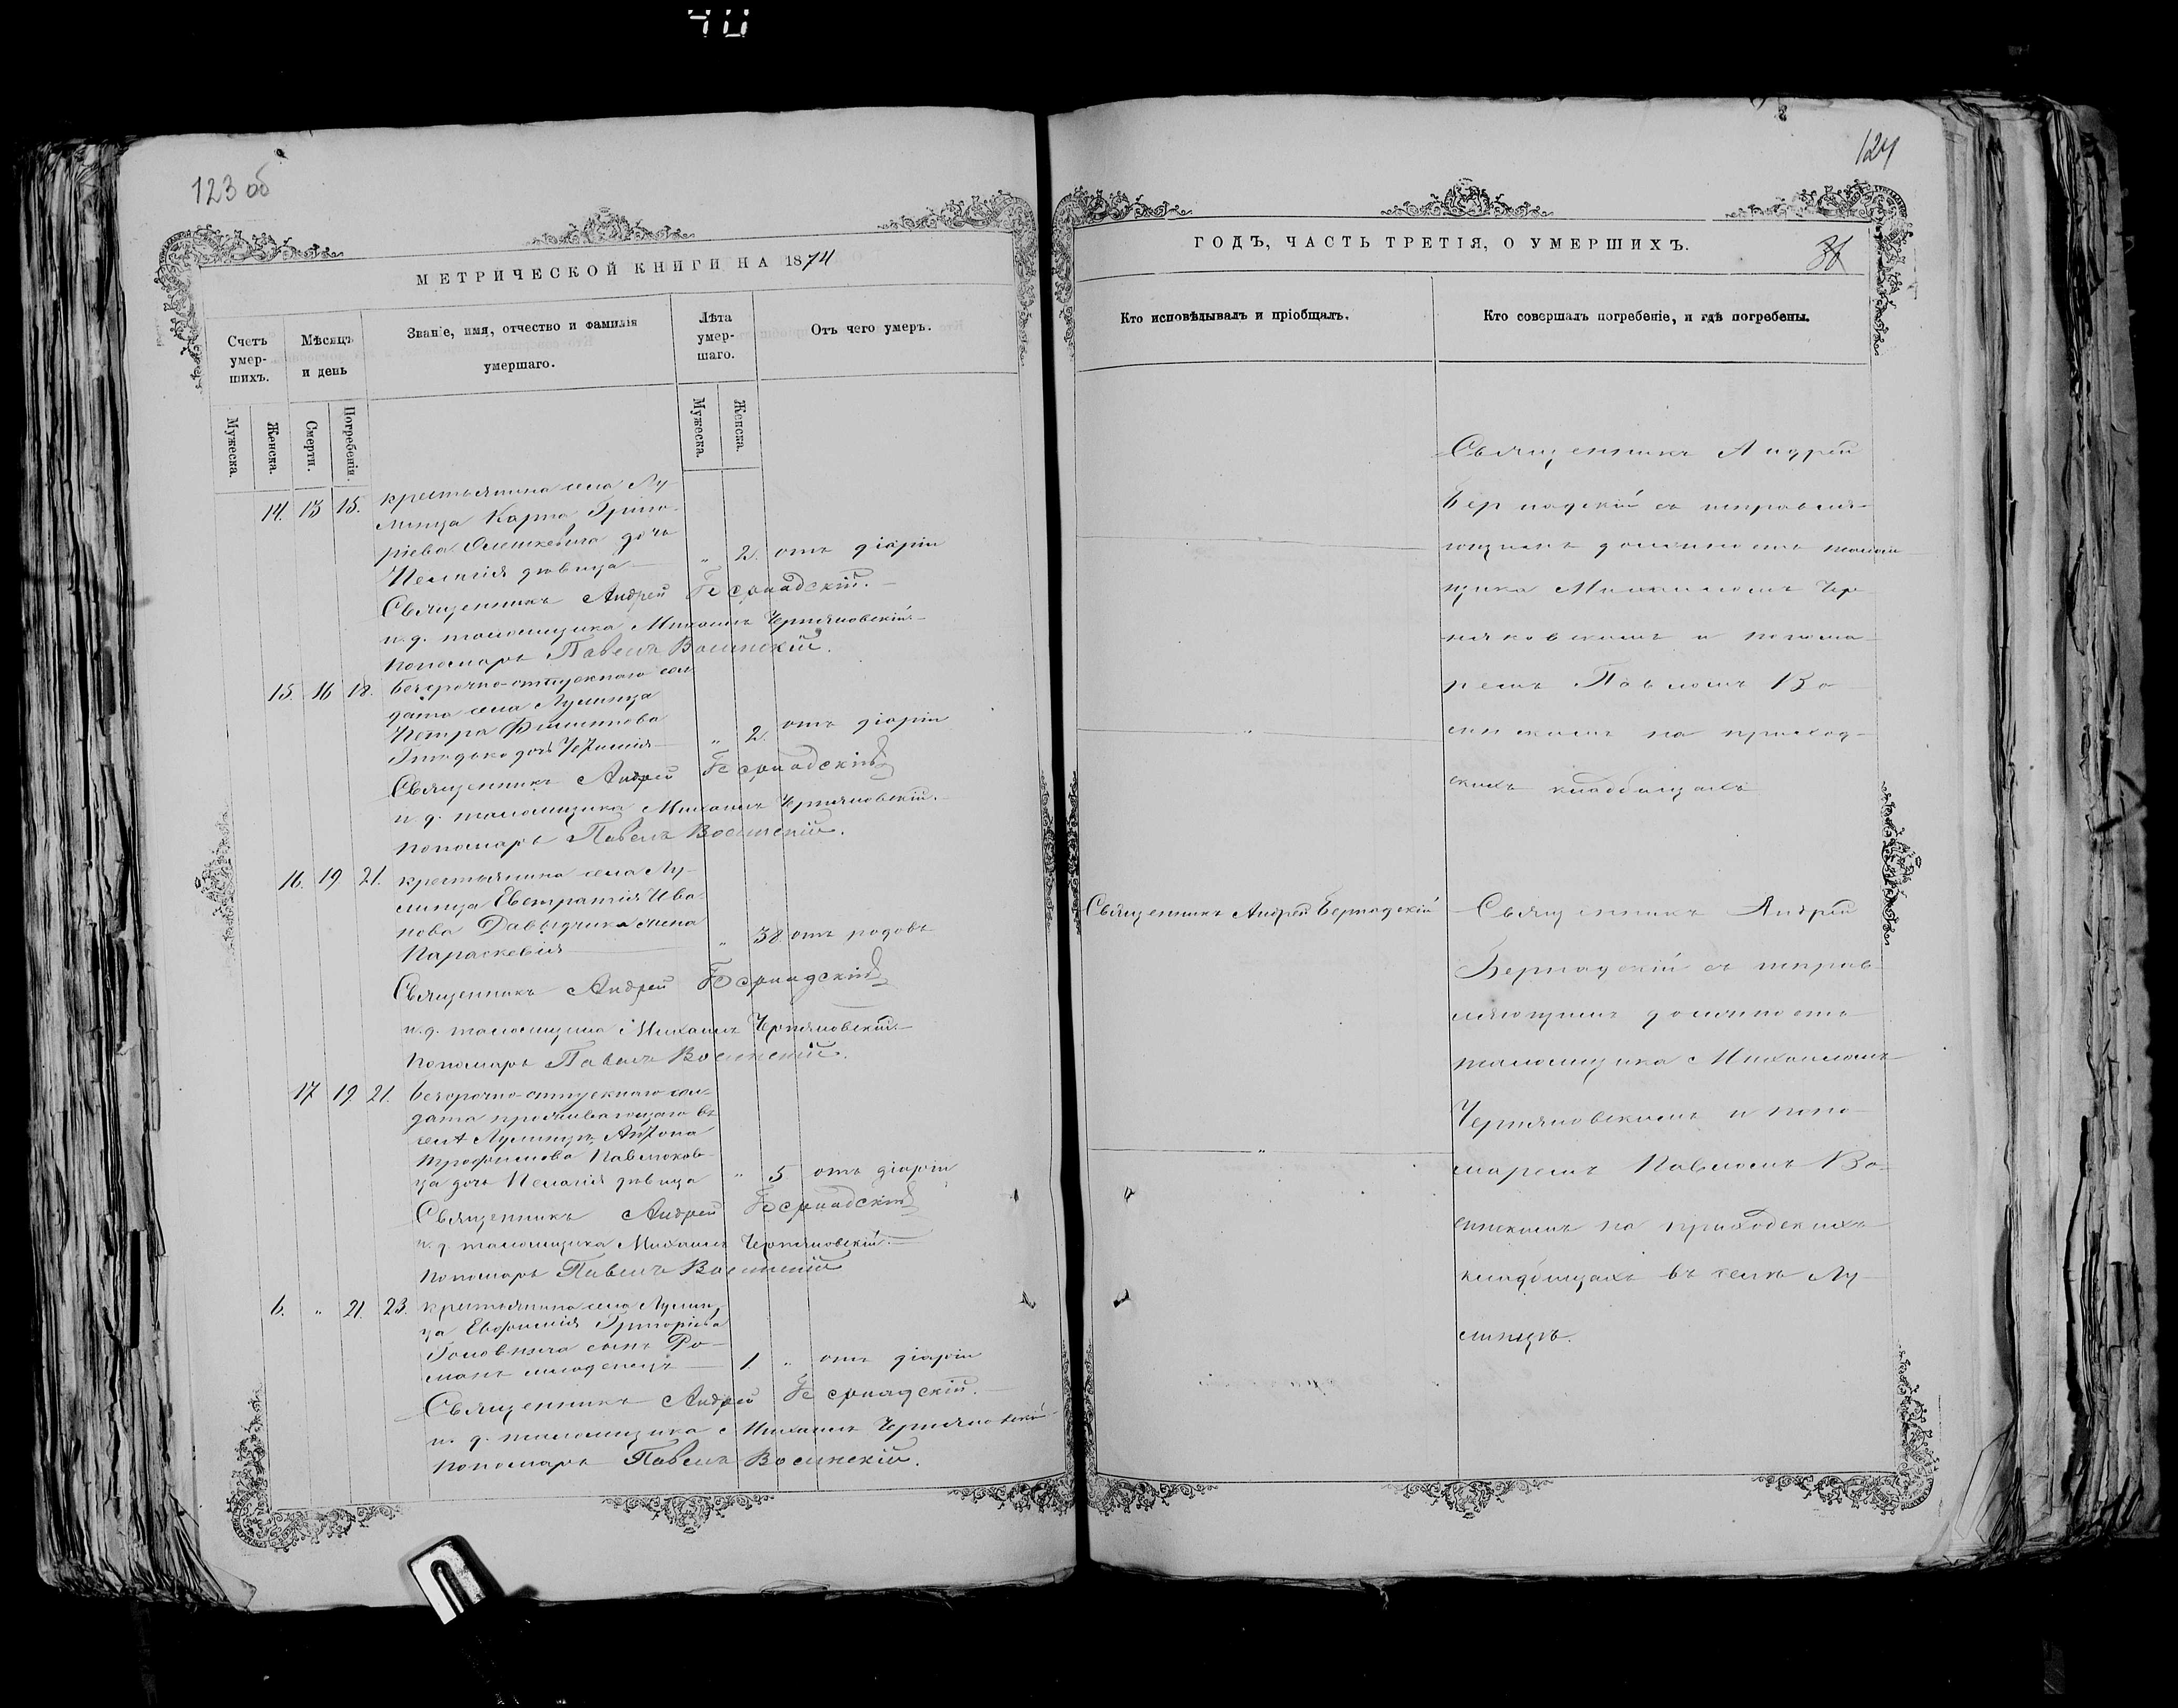 40
123 об
МЕТРИЧЕСКОЙ КНИГИ НА 1874
Счетъ умер-шихъ.
Мѣсяцъ и день
Званіе, имя, отчество и фамилія умершаго.
Лѣта умер-шаго.
Отъ чего умеръ.
Мужеска.
Женска.
Смерти.
Погребенія.
Мужеска.
Женска.
14. 13 15. крестьянина села Лу-
линца Карпа Григо-
ріева Олешкевича дочь
Пелагія дѣвица — „ 2. отъ діаріи
Священникъ Андрей Бернадскій.
и. д. псаломщика Михаилъ Черняковскій
пономарь Павелъ Волинскій.
15. 16 18. безсрочно-отпускнаго сол-
дата села Лулинца
Петра Филиппова
дочь „ 2. отъ діаріи
Священникъ Андрей Бернадскій
и. д. псаломщика Михаилъ Черняковскій.
пономарь Павелъ Волинскій.
16. 19 21. крестьянина села Лу-
линца Евстратія Ива-
нова Давыдчика жена
Параскевія „ 38 отъ родовъ
Священникъ Андрей Бернадскій
и. д. псаломщика Михаилъ Черняковскій
пономарь Павелъ Волинскій.
17 19. 21. безсрочно-отпускнаго сол-
дата проживающаго въ
селѣ Лулинцѣ Антона
Трофимова
дочь Пелагія дѣвица „ 5 отъ діаріи
Священникъ Андрей Бернадскій
и. д. псаломщика Михаилъ Черняковскій.
пономарь Павелъ Волинскій
6. „ 21. 23. крестьянина села Лулин-
ца Евфимія Григоріева
сынъ Ро-
манъ младенецъ — 1 „ отъ діаріи
Священникъ Андрей Бернадскій.
и. д. псаломщика Михаилъ Черняковскій
пономарь Павелъ Волинскій.
124
ГОДЪ, ЧАСТЬ ТРЕТІЯ, О УМЕРШИХЪ.
Кто исповѣдывалъ и пріобщалъ.
Кто совершалъ погребеніе, и гдѣ погребены.
Священникъ Андрей
Бернадскій съ исправля-
ющимъ должность псалом-
щика Михаиломъ Чер-
няковскимъ и понома-
ремъ Павломъ Во-
линскимъ на приход-
скихъ кладбищахъ
„
Священникъ Андрей Бернадскій
Священникъ Андрей
Бернадскій съ исправ-
ляющимъ должность
псаломщика Михаиломъ
Черняковскимъ и поно-
маремъ Павломъ Во-
линскимъ на приходскихъ
кладбищахъ въ селѣ Лу-
линцѣ.
„